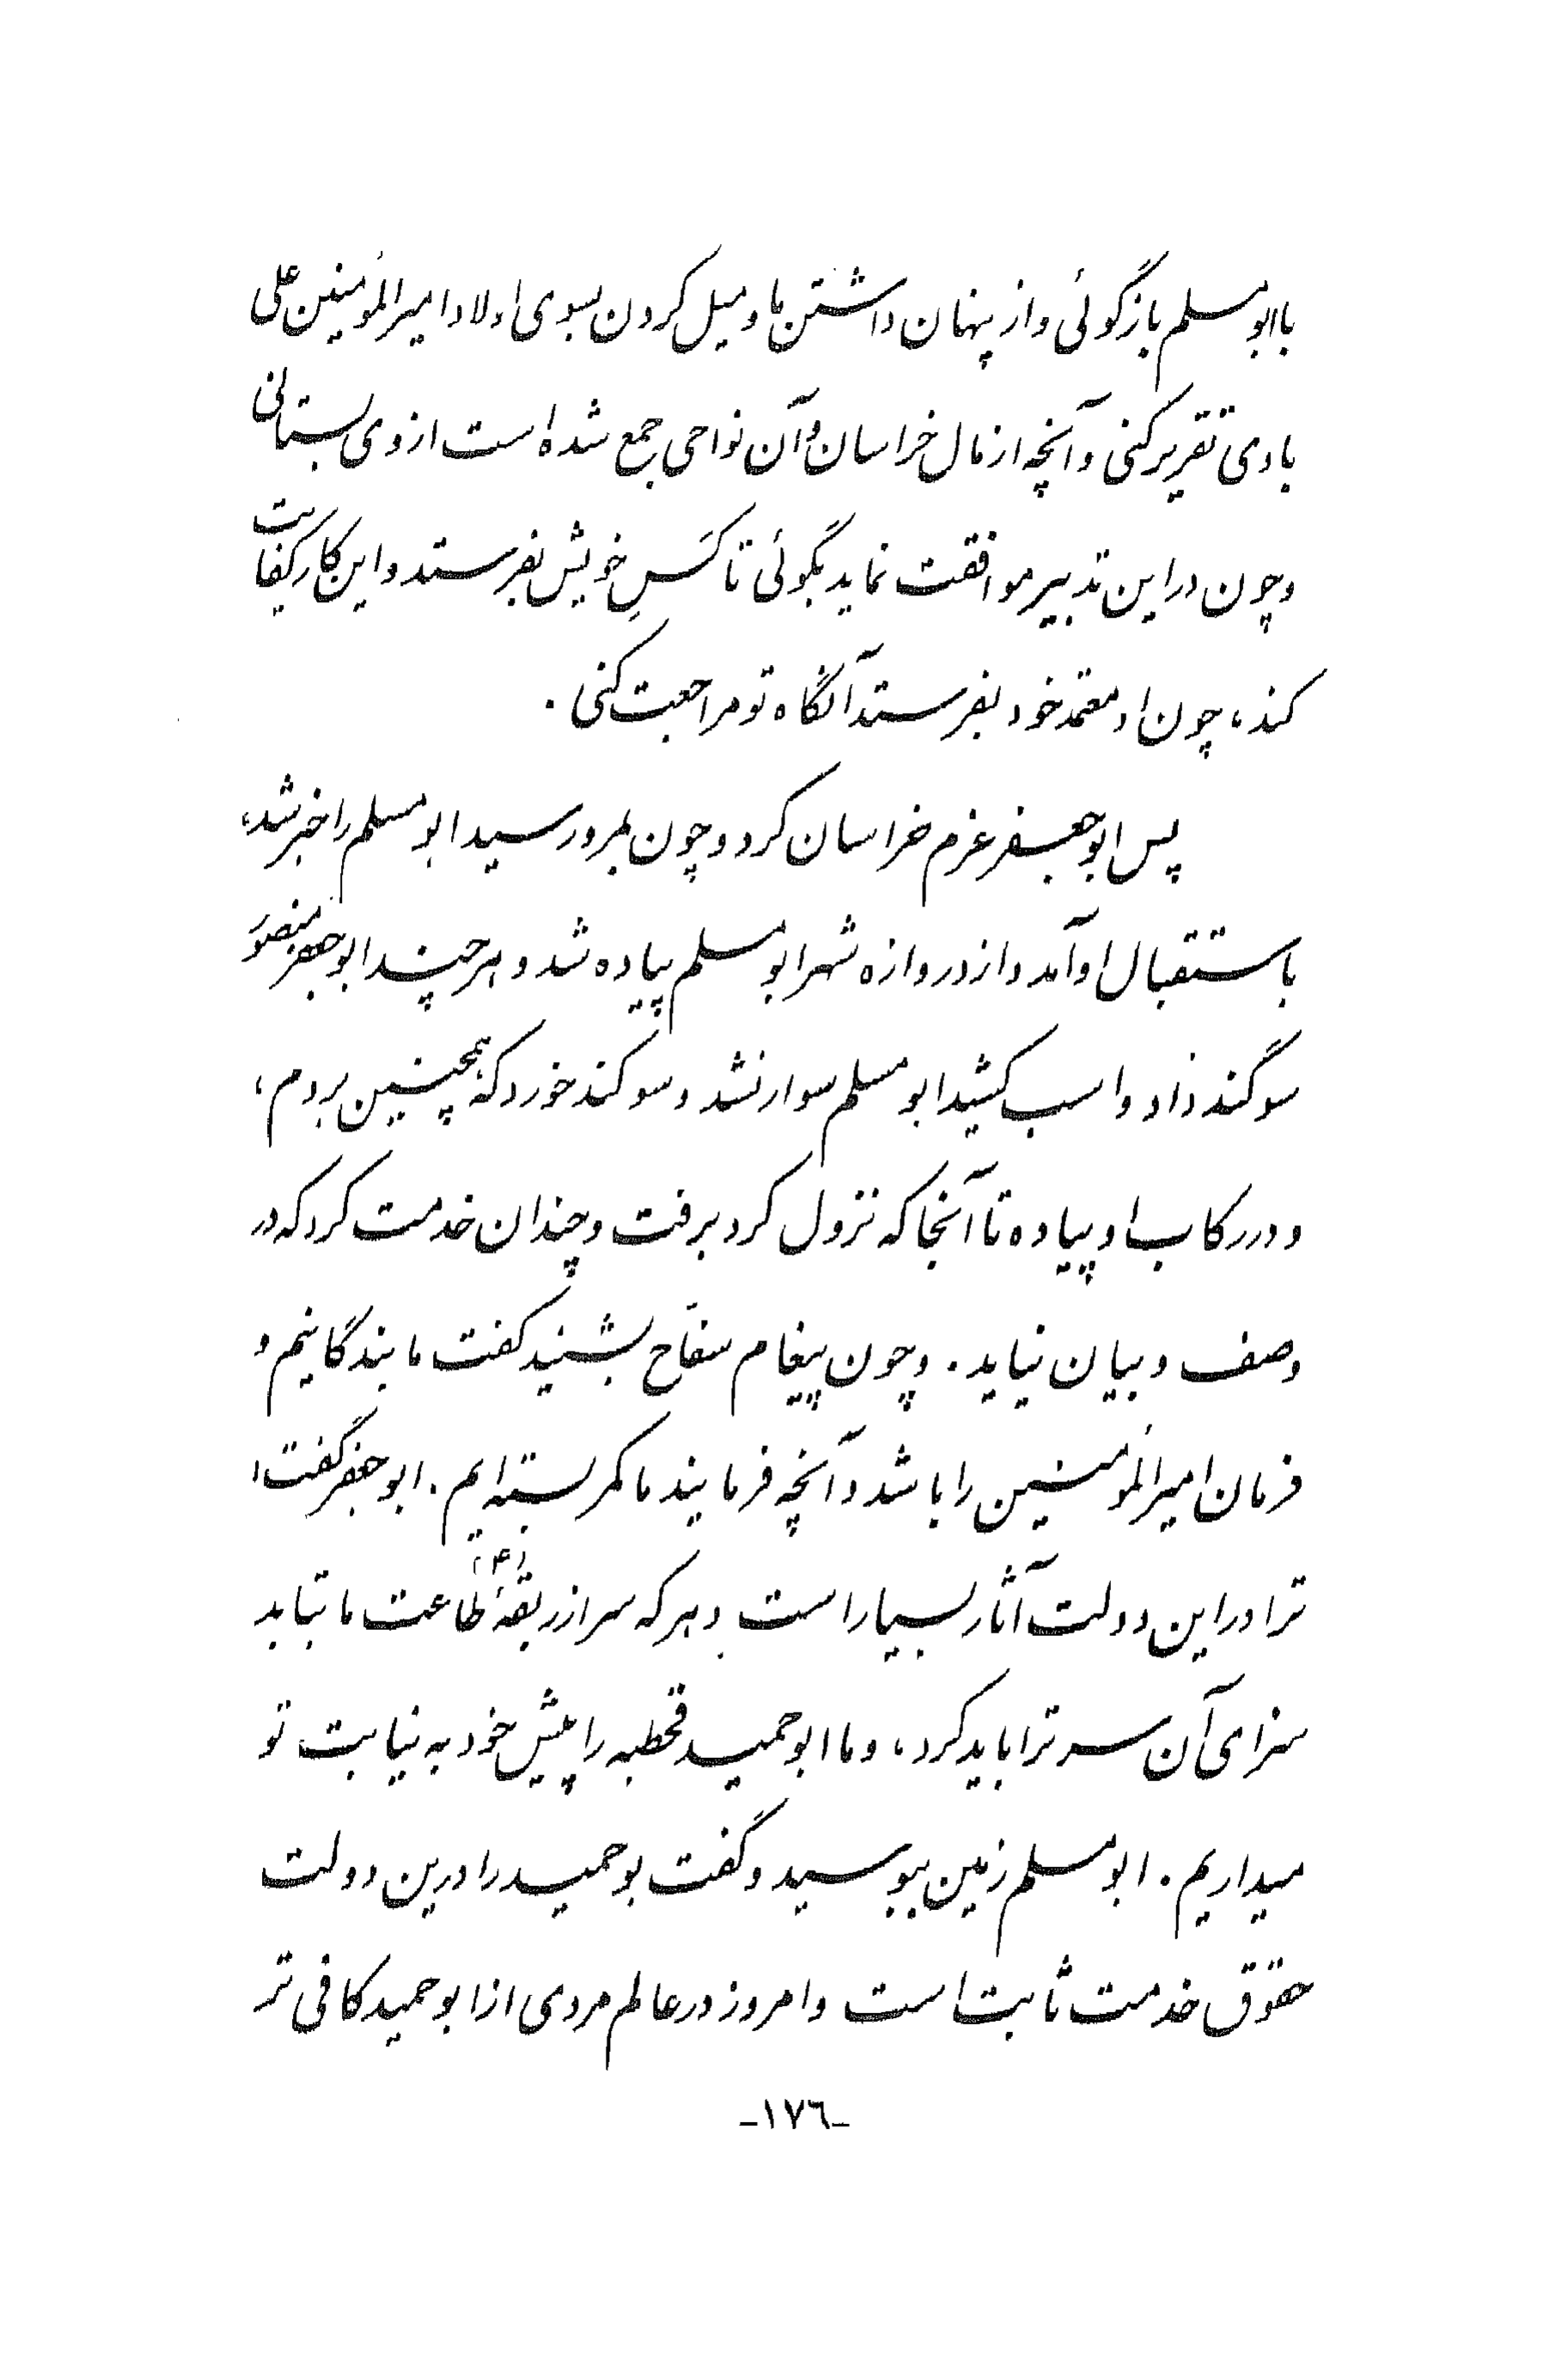 با ابومسلم بازگوئی و از پنهان داشتن ما و میل کردن بسوی اولاد امیرالمؤمنین علی
با وی تقریر کنی و آنچه از مال خراسان و آن نواحی جمع شده است از وی بستانی
و چون در این تدبیر موافقت نماید بگوئی تا کَسِ خویش بفرستد و این کار کفایت
کند، چون او معتمد خود بفرستد آنگاه تو مراجعت کنی .
پس ابوجعفر عزم خراسان کرد و چون بمرو رسید ابومسلم را خبر شد،
باستقبال او آمد و از دروازه شهر ابومسلم پیاده شد و هرچند ابوجعفر منصور
سوگند داد و اسب کشید ابومسلم سوار نشد و سوگند خورد که همچنین بروم ،
و در رکاب او پیاده تا آنجا که نزول کرد برفت و چندان خدمت کرد که در
وصف و بیان نیاید . و چون پیغام سفّاح بشنید گفت ما بندگانیم و
فرمان امیرالمؤمنین را باشد و آنچه فرمایند ما کمر بسته‌ایم . ابوجعفر گفت ؛
ترا در این دولت آثار بسیار است و هر که سر از ربقهٔ (۴) طاعت ما بتابد
سزای آن سر ترا باید کرد ، و ما ابوحمید قحطبه را پیش خود به نیابت تو
میداریم . ابومسلم زمین ببوسید و گفت بوحمید را درین دولت
حقوق خدمت ثابت است و امروز در عالم مردی از ابوحمید کافی تر
-١٧٦-